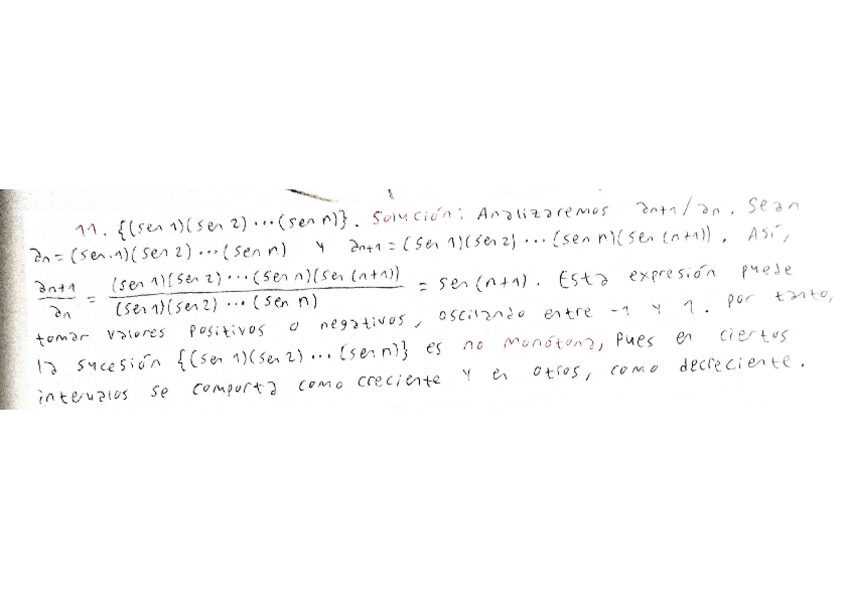 11. {(sen 1)(sen 2)...(sen n)}. Solución: Analizaremos an+1/an. Sean
an = (sen 1)(sen 2)...(sen n) y an+1 = (sen 1)(sen 2)...(sen n)(sen (n+1)). Así,
an+1/an = (sen 1)(sen 2)...(sen n)(sen (n+1))/(sen 1)(sen 2)...(sen n) = sen (n+1). Esta expresión puede
tomar valores positivos o negativos, oscilando entre -1 y 1. por tanto,
la sucesión {(sen 1)(sen 2)...(sen n)} es no monótona, pues en ciertos
intervalos se comporta como creciente y en otros, como decreciente.